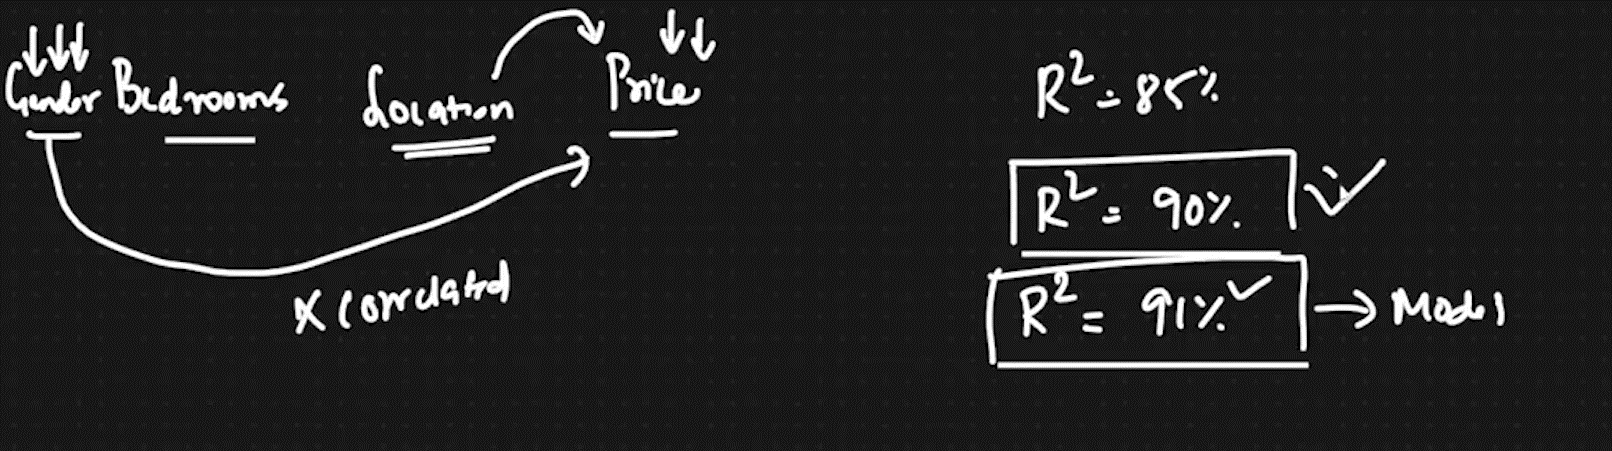 Gender Bedrooms Location Price
X Correlated
R² = 85%
R² = 90%.
R² = 91%. → Model